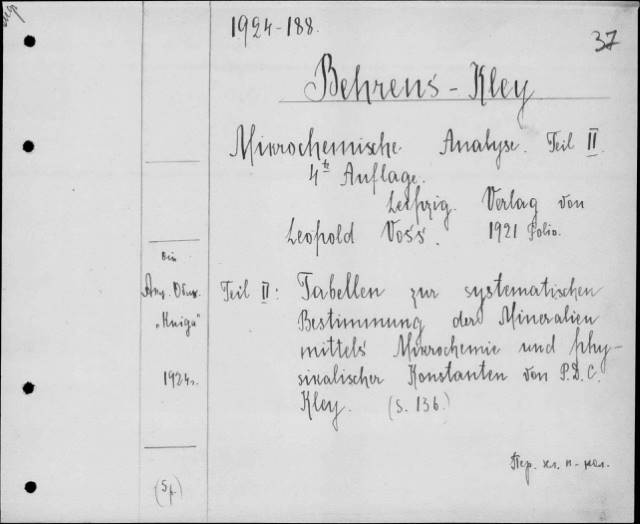 1924-188.
37
Behrens - Kley
Mikrochemische Analyse. Teil II.
4te Auflage.
Leipzig. Verlag von
Leopold Voss. 1921 Folio.
Teil II: Tabellen zur systematischen
Bestimmung der Mineralien
mittels Mikrochemie und phy-
sikalischer Konstanten von P.D.C.
Kley. (S. 136.)
"Книга"
1924г.